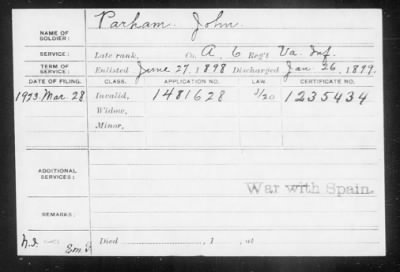 NAME OF SOLDIER: Parham John.
SERVICE: Late rank, Co. A, 6 Reg't Va. Inf.
TERM OF SERVICE: Enlisted June 27, 1898 Discharged Jan. 26, 1899.
DATE OF FILING. CLASS. APPLICATION NO. LAW. CERTIFICATE NO.
1923 Mar. 28 Invalid, 1481628 1235434
Widow,
Minor,
ADDITIONAL SERVICES:
War with Spain.
REMARKS:
Died , 1 , at